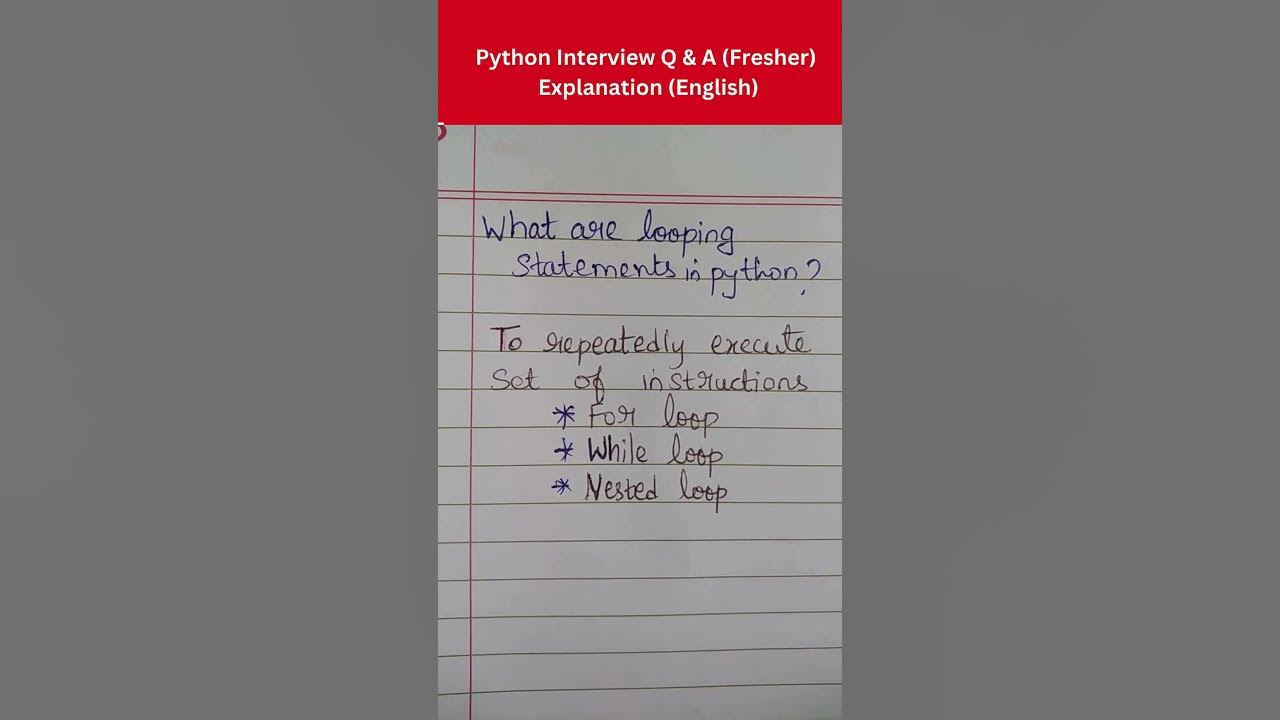 Python Interview Q & A (Fresher)
Explanation (English)
What are looping
Statements in python?
To repeatedly execute
Set of instructions
* For loop
* While loop
* Nested loop